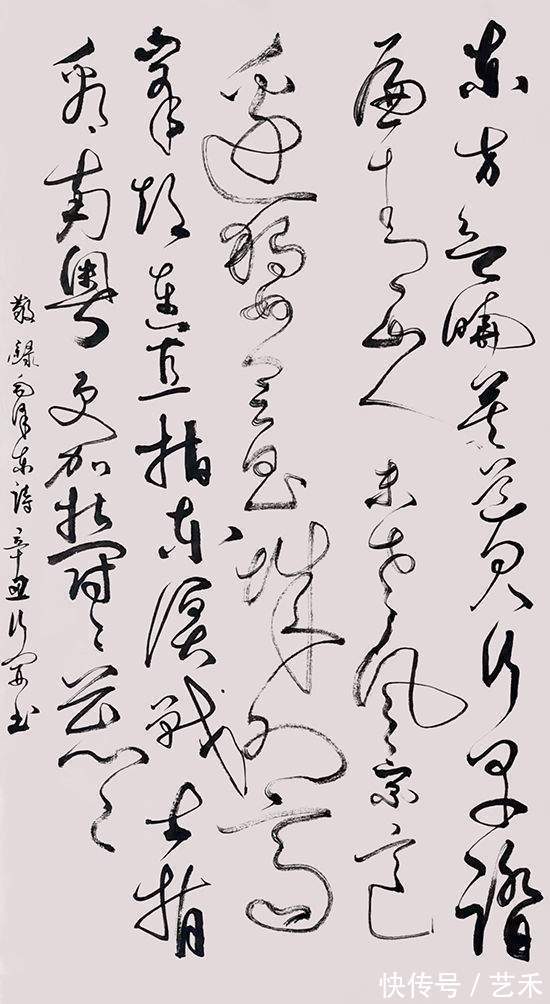 东方欲晓莫道君行早踏
遍青山人未老风景这
边独好会昌城外高
峰颠连直指东溟战士指
看南粤更加郁々葱々
敬録毛泽东诗辛丑书
快传号/艺禾